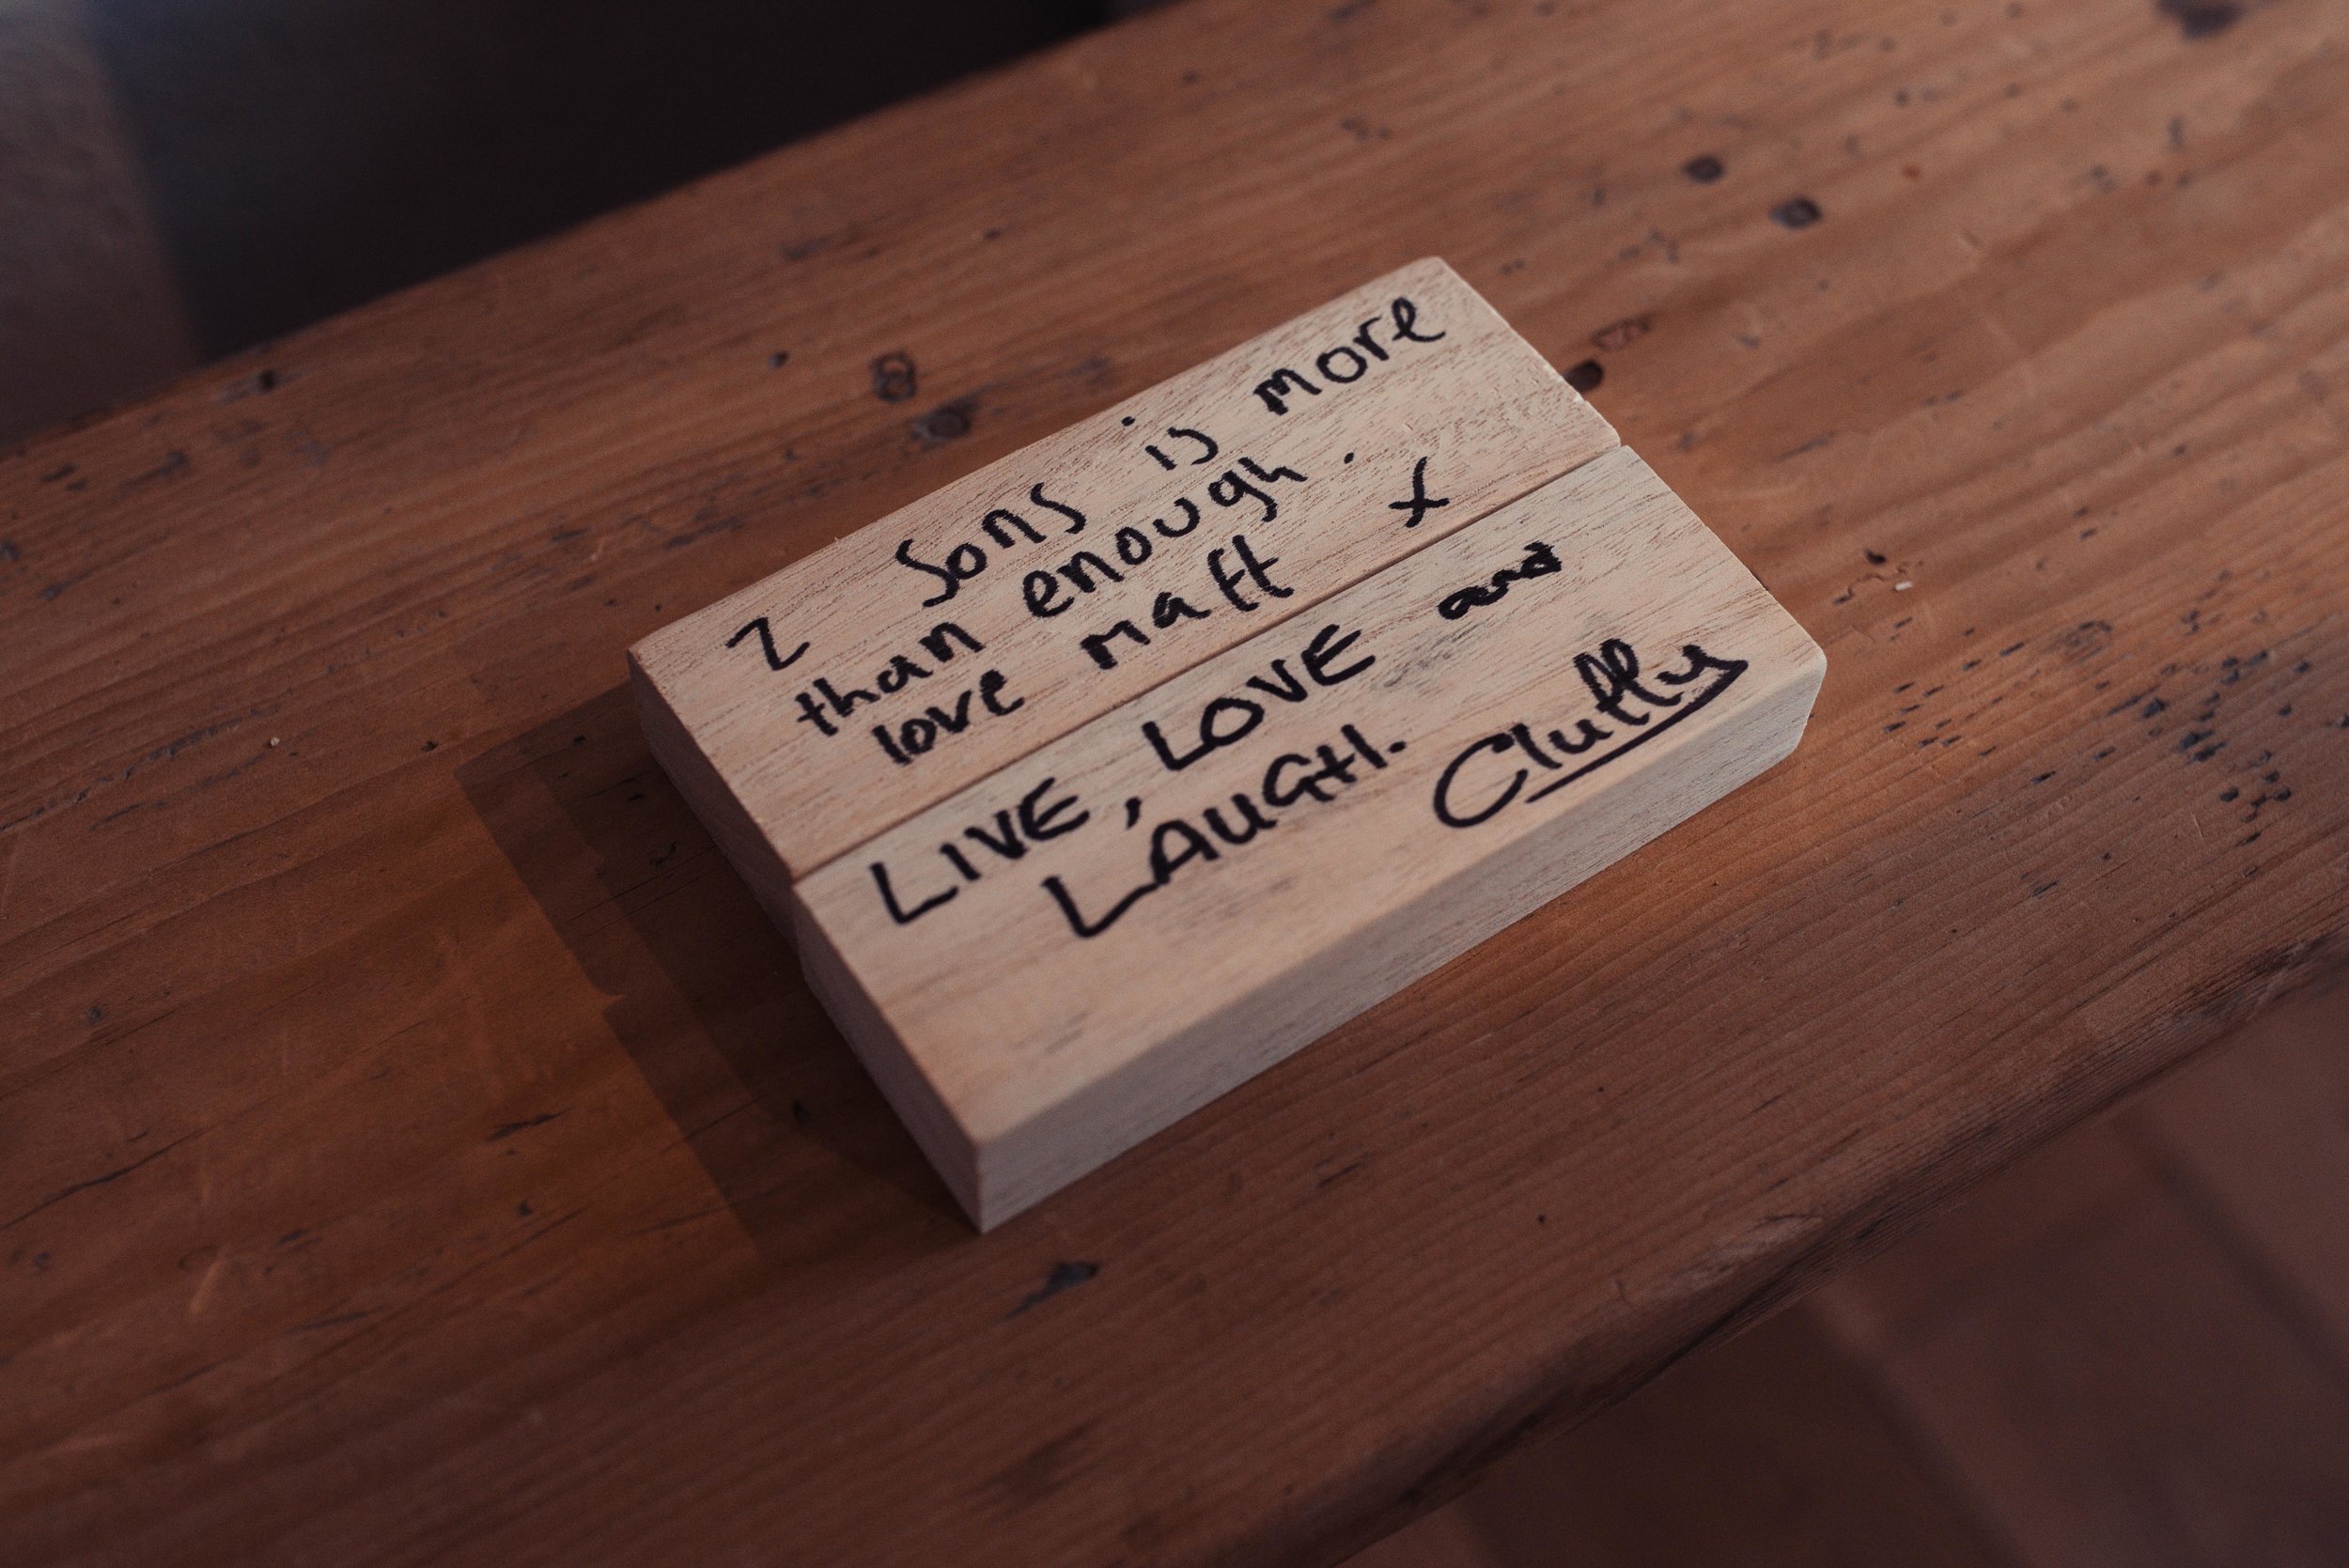 2 sons is more
than enough.
love matt x
LIVE, LOVE and
LAUGH. Cluffy